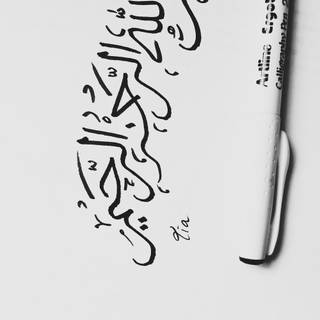 الله الرحمن الرحيم
Artline Ergo
Calligraphy Pen